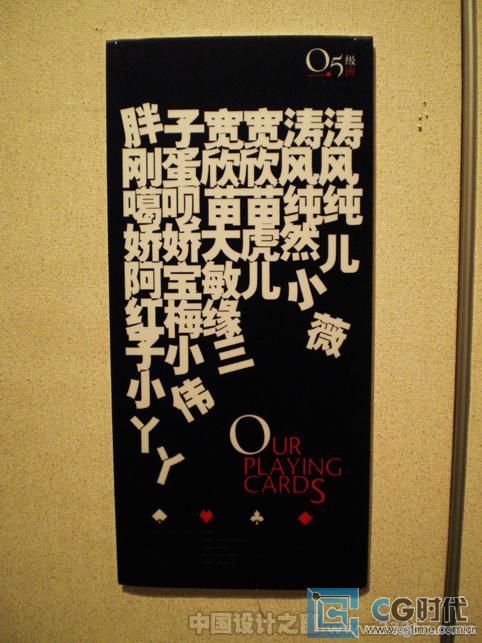 05级
胖子宽宽涛涛
刚蛋欣欣风风
噶呗苗苗纯纯
娇娇大虎然儿
阿宝敏儿小薇
红梅缘三
子小伟
小丫丫
OUR
PLAYING
CARDS
中国设计之窗
CG时代
www.cgtimo.com.cn